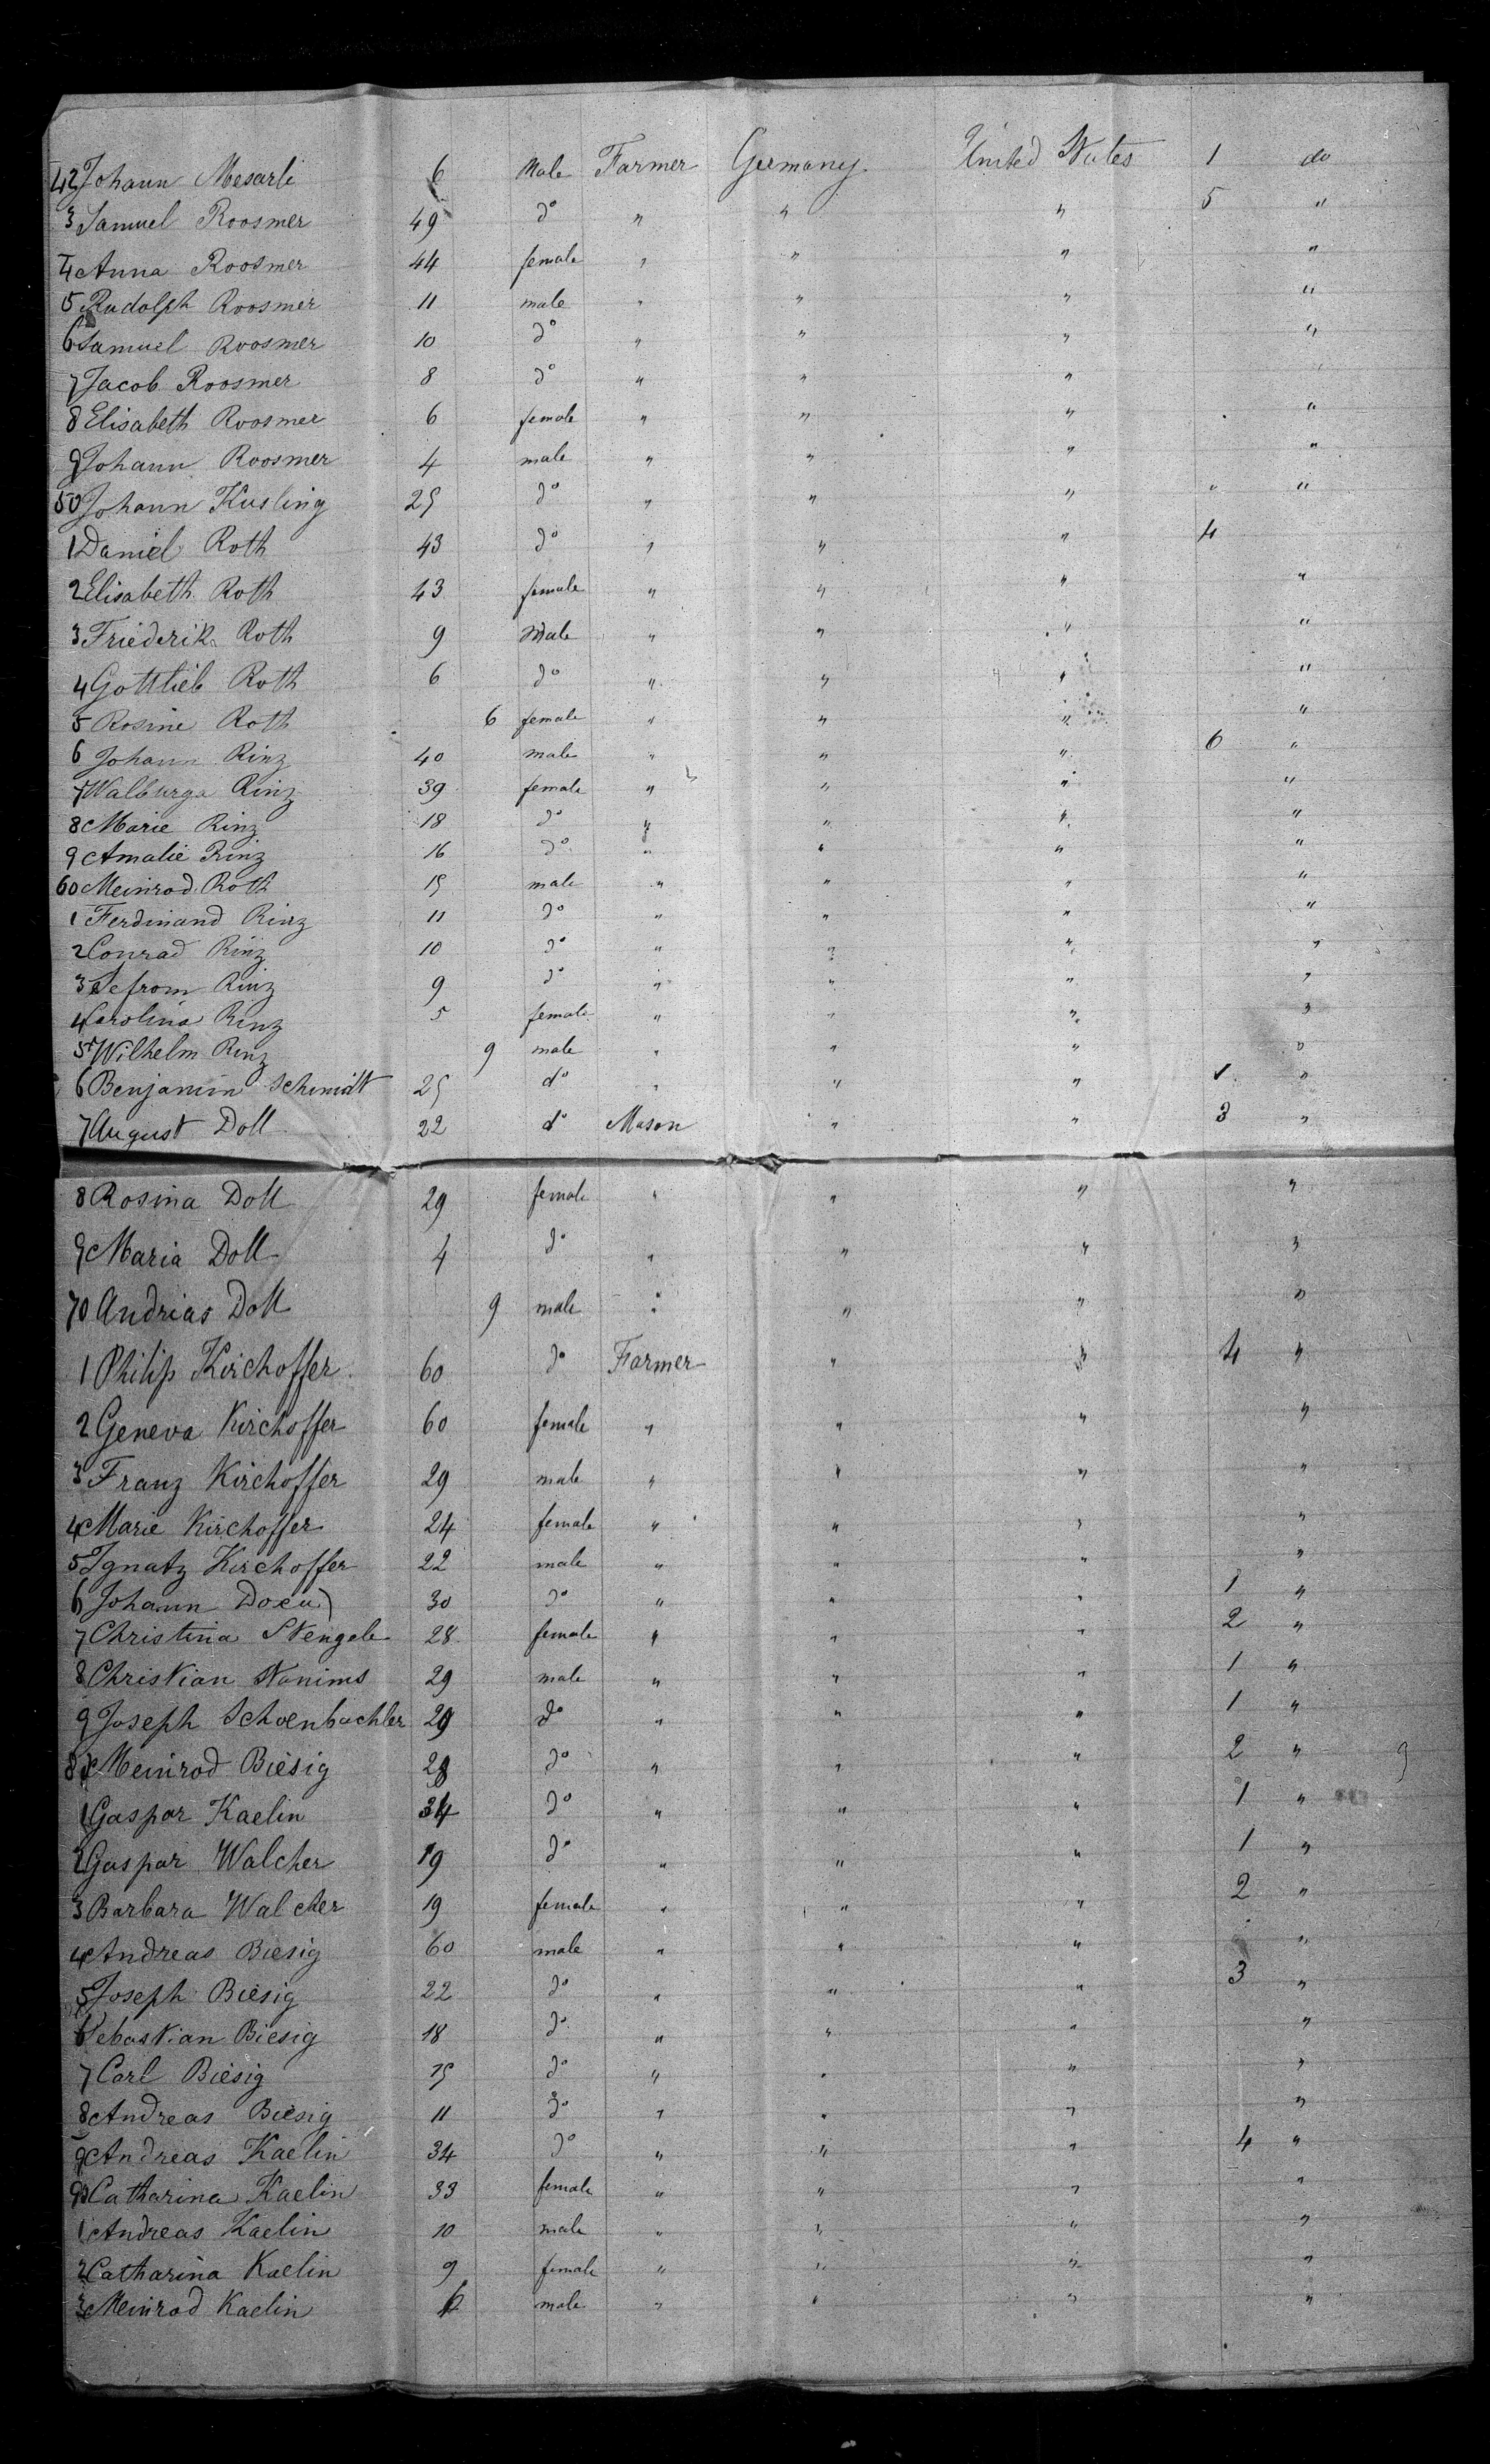 42 Johann Mesarli 6 Male Farmer Germany United States 1 do
3 Samuel Roosmer 49 do " " " 5 "
4 Anna Roosmer 44 female " " " "
5 Rudolph Roosmer 11 male " " " "
6 Samuel Roosmer 10 do " " " "
7 Jacob Roosmer 8 do " " " "
8 Elisabeth Roosmer 6 female " " " "
9 Johann Roosmer 4 male " " " "
50 Johann Kusling 25 do " " " " "
1 Daniel Roth 43 do " " " 4
2 Elisabeth Roth 43 female " " " "
3 Friederik Roth 9 Male " " " "
4 Gottlieb Roth 6 do " " " "
5 Rosine Roth 6 female " " " "
6 Johann Rinz 40 male " " " 6 "
7 Walburga Rinz 39 female " " " "
8 Marie Rinz 18 do " " " "
9 Amalie Rinz 16 do " " " "
60 Meinrod Roth 15 male " " " "
1 Ferdinand Rinz 11 do " " " "
2 Conrad Rinz 10 do " " " "
3 Sefrom Rinz 9 do " " " "
4 Carolina Rinz 5 female " " " "
5 Wilhelm Rinz 9 male " " " "
6 Benjamin Schmidt 25 do " " " 1 "
7 August Doll 22 do Mason " " 3 "
8 Rosina Doll 29 female " " " "
9 Maria Doll 4 do " " " "
70 Andrias Doll 9 male " " " "
1 Philip Kirchoffer 60 do Farmer " " 4 "
2 Geneva Kirchoffer 60 female " " " "
3 Franz Kirchoffer 29 male " " " "
4 Marie Kirchoffer 24 female " " " "
5 Ignatz Kirchoffer 22 male " " " "
6 Johann 30 do " " " 1 "
7 Christina Stengele 28 female " " " 2 "
8 Christian Stanims 29 male " " " 1 "
9 Joseph Schoenbachler 29 do " " " 1 "
80 Meinrod Biesig 28 do " " " 2 " 9
1 Gaspar Kaelin 34 do " " " 1 "
2 Gaspar Walcher 19 do " " " 1 "
3 Barbara Walcher 19 female " " " 2 "
4 Andreas Biesig 60 male " " " "
5 Joseph Biesig 22 do " " " 3 "
6 Sebastian Biesig 18 do " " " "
7 Carl Biesig 15 do " " " "
8 Andreas Biesig 11 do " " " "
9 Andreas Kaelin 34 do " " " 4 "
90 Catharina Kaelin 33 female " " " "
1 Andreas Kaelin 10 male " " " "
2 Catharina Kaelin 9 female " " " "
3 Meinrod Kaelin 6 male " " " "